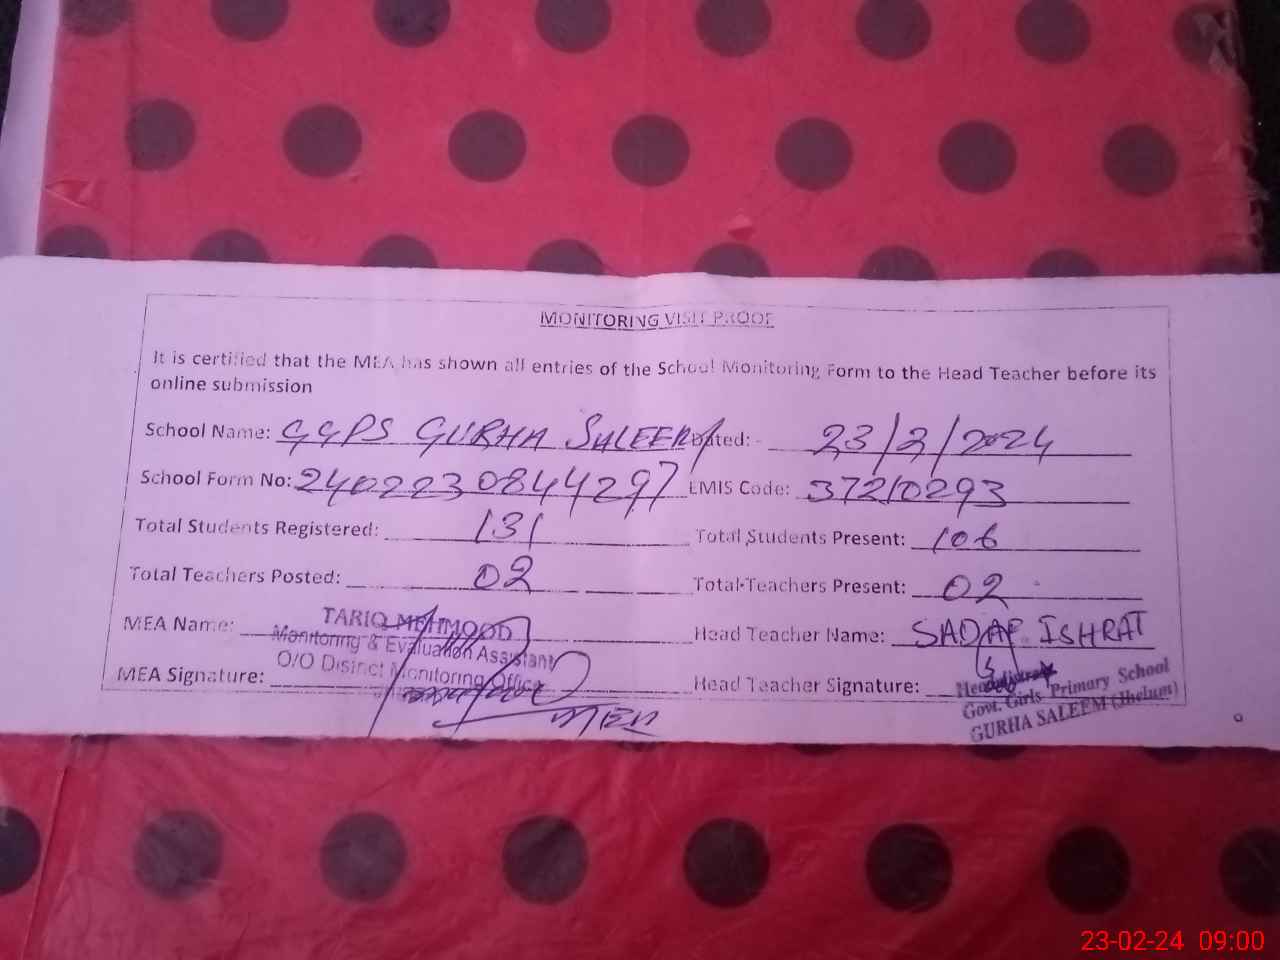 MONITORING VISIT PROOF
It is certified that the MEA has shown all entries of the School Monitoring Form to the Head Teacher before its
online submission
School Name: GGPS GURHA SALEEM Dated: - 23/2/2024
School Form No: 2402230844297 EMIS Code: 37210293
Total Students Registered: 131 Total Students Present: 106
Total Teachers Posted: 02 Total Teachers Present: 02
MEA Name: TARIQ MEHMOOD Head Teacher Name: SADAF ISHRAT
Monitoring & Evaluation Assistant
O/O District Monitoring Office
MEA Signature: Head Teacher Signature:
MEA
Headmistress
Govt. Girls Primary School
GURHA SALEEM (Jhelum)
23-02-24 09:00